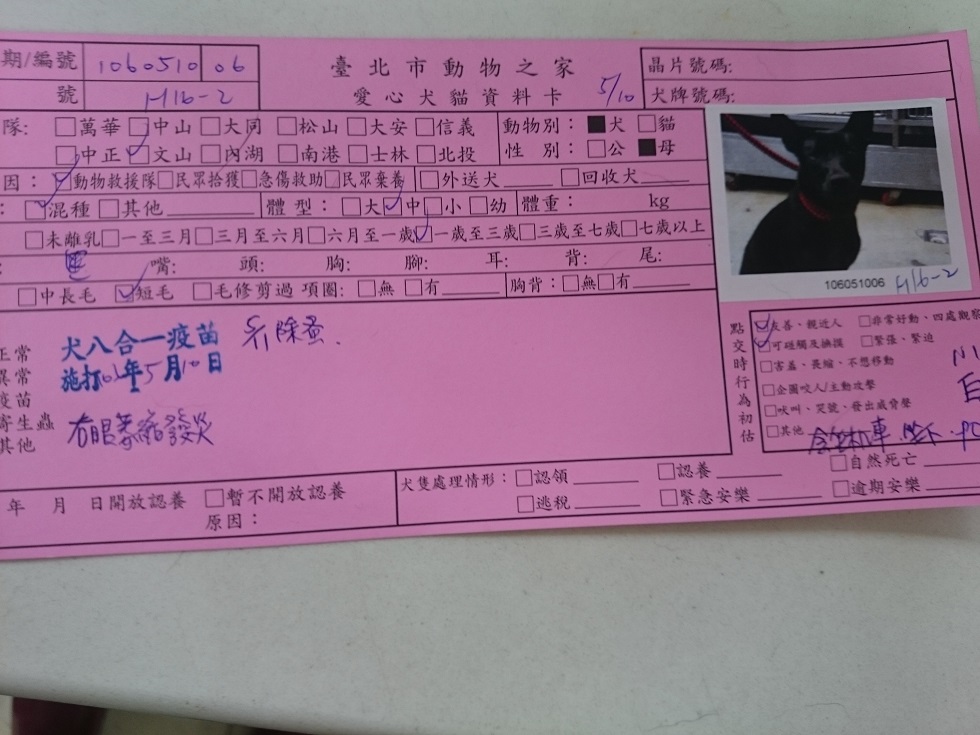 期/編號 1060510 06
臺北市動物之家
晶片號碼:
號 H16-2
愛心犬貓資料卡 5/10
犬牌號碼:
隊: □萬華 □中山 □大同 □松山 □大安 □信義
動物別: ■犬 □貓
□中正 ☑文山 □內湖 □南港 □士林 □北投
性 別: □公 ■母
因: ☑動物救援隊 □民眾拾獲 □急傷救助 □民眾棄養 □外送犬 □回收犬
: ☑混種 □其他 體型: □大 ☑中 □小 □幼 體重: kg
□未離乳 □一至三月 □三月至六月 □六月至一歲 ☑一歲至三歲 □三歲至七歲 □七歲以上
: 黑 嘴: 頭: 胸: 腳: 耳: 背: 尾:
□中長毛 ☑短毛 □毛修剪過 項圈: □無 □有 胸背: □無 □有
106051006 H16-2
正常
異常
疫苗
寄生蟲
其他
犬八合一疫苗
施打 年5月10日
除蚤.
右眼 發炎
點交時行為初估
☑友善、親近人 □非常好動、四處觀察
☑可碰觸及撫摸 □緊張、緊迫
□害羞、畏縮、不想移動
□企圖咬人/主動攻擊
□吠叫、哭號、發出威脅聲
□其他
年 月 日開放認養 □暫不開放認養
原因:
犬隻處理情形: □認領 □認養 □自然死亡
□逃稅 □緊急安樂 □逾期安樂